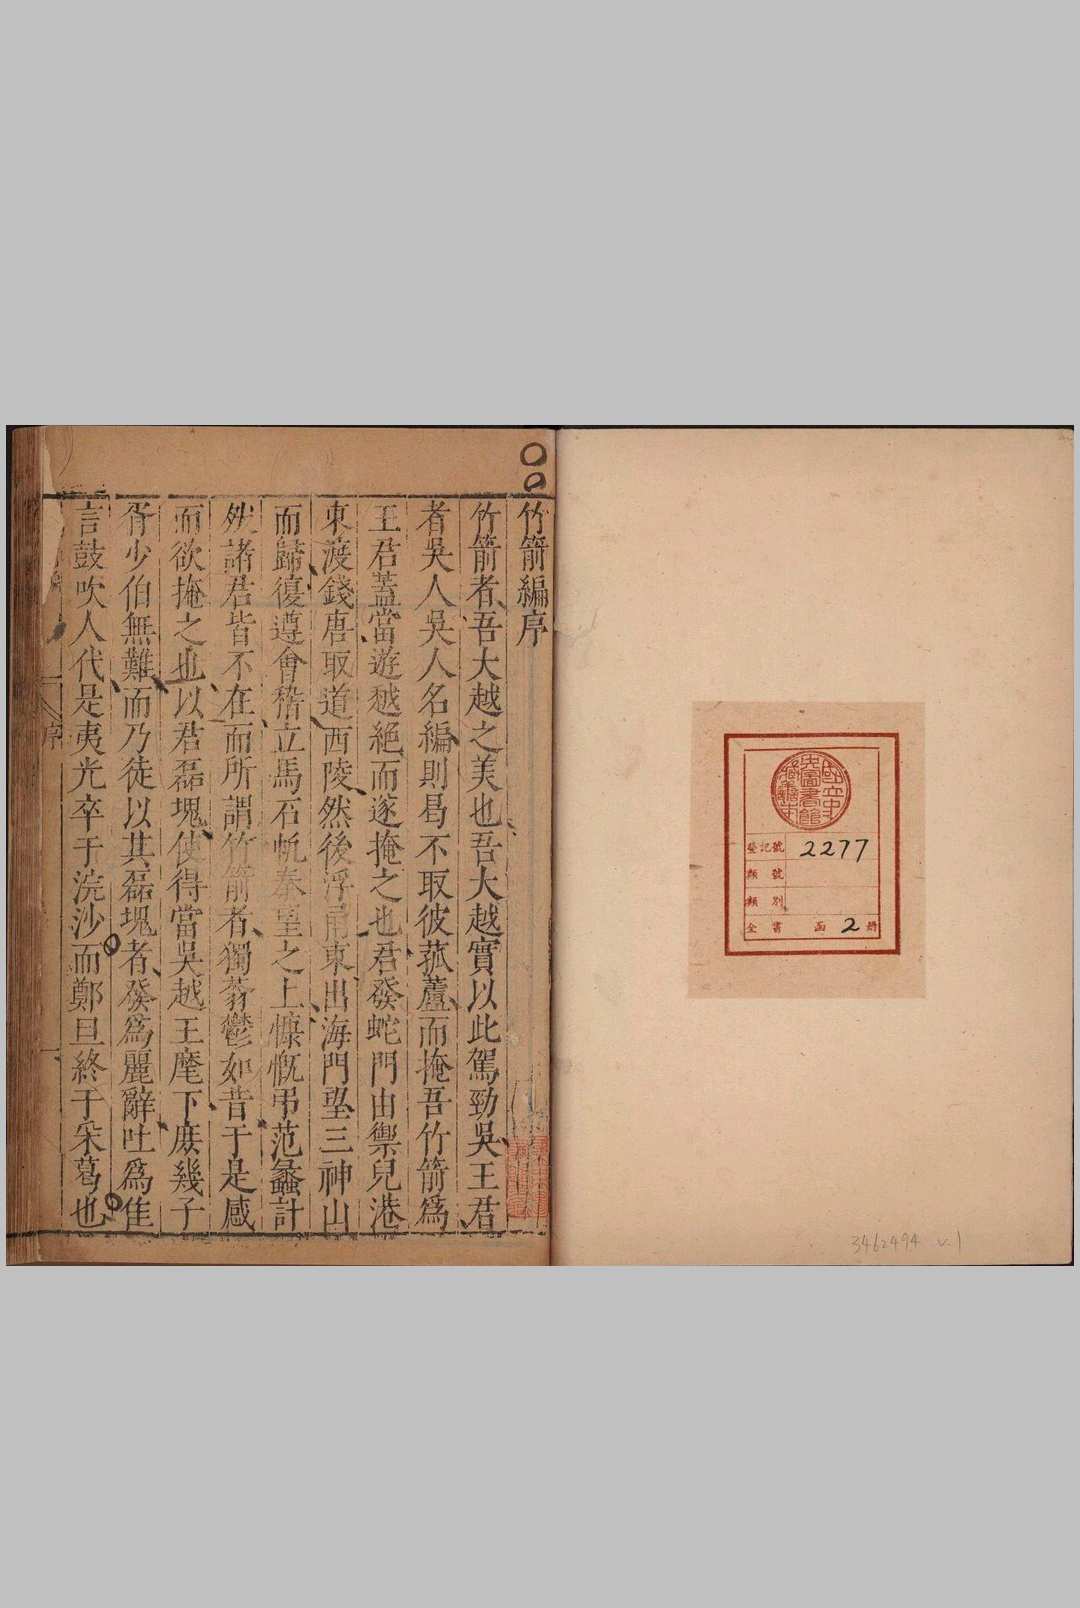 國立中央圖書館藏書
登記號 2277
類號
類別
全書 函 2 册
3462494 v.1
竹箭編序
竹箭者吾大越之美也吾大越實以此駕勁吳王君
者吳人吳人名編則曷不取彼菰蘆而掩吾竹箭爲
王君蓋當遊越絕而遂掩之也君發蛇門由禦兒港
東渡錢唐取道西陵然後浮甬東出海門望三神山
而歸復遵會稽立馬石帆秦望之上慷慨弔范蠡計
然諸君皆不在而所謂竹箭者獨蓊鬱如昔于是感
而欲掩之也以君磊塊使得當吳越王麾下庶幾子
胥少伯無難而乃徒以其磊塊者發爲麗辭吐爲隹
言鼓吹人代是夷光卒于浣沙而鄭旦終于采葛也
序